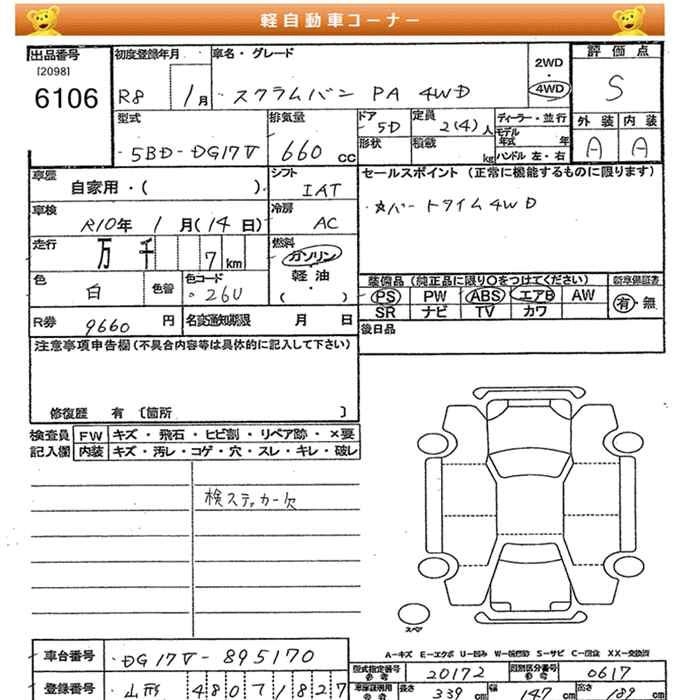 軽自動車コーナー
出品番号
[2098]
6106
初度登録年月
R8 1月
車名・グレード
スクラムバン PA 4WD
2WD
4WD
評価点
S
型式
5BD-DG17V
排気量
660 cc
ドア
5D
定員
2(4)人
ディーラー・並行
モデル年式 年
形状
積載 kg
ハンドル 左・右
外装 内装
A A
車歴
自家用・( )
シフト
IAT
セールスポイント (正常に機能するものに限ります)
パートタイム4WD
車検
R10年 1月(14日)
冷房
AC
走行
万 千 7 km
燃料
ガソリン・
軽油・
( )
色
白
色替
色コード
26U
装備品 (純正品に限り○をつけてください)
新車保証書
PS PW ABS エアB AW
SR ナビ TV カワ
有・無
R券
9660 円
名変通知期限 月 日
後日品
注意事項申告欄 (不具合内容等は具体的に記入して下さい)
修復歴 有 〔箇所 〕
検査員 FW キズ・飛石・ヒビ割・リペア跡・×要
記入欄 内装 キズ・汚レ・コゲ・穴・スレ・キレ・破レ
検ステッカー欠
スペア
車台番号
DG17V-895170
型式指定番号 参考
20172
類別区分番号 参考
0617
登録番号
山形 480 ア 1827
長さ 339 cm
幅 147 cm
高さ 189 cm